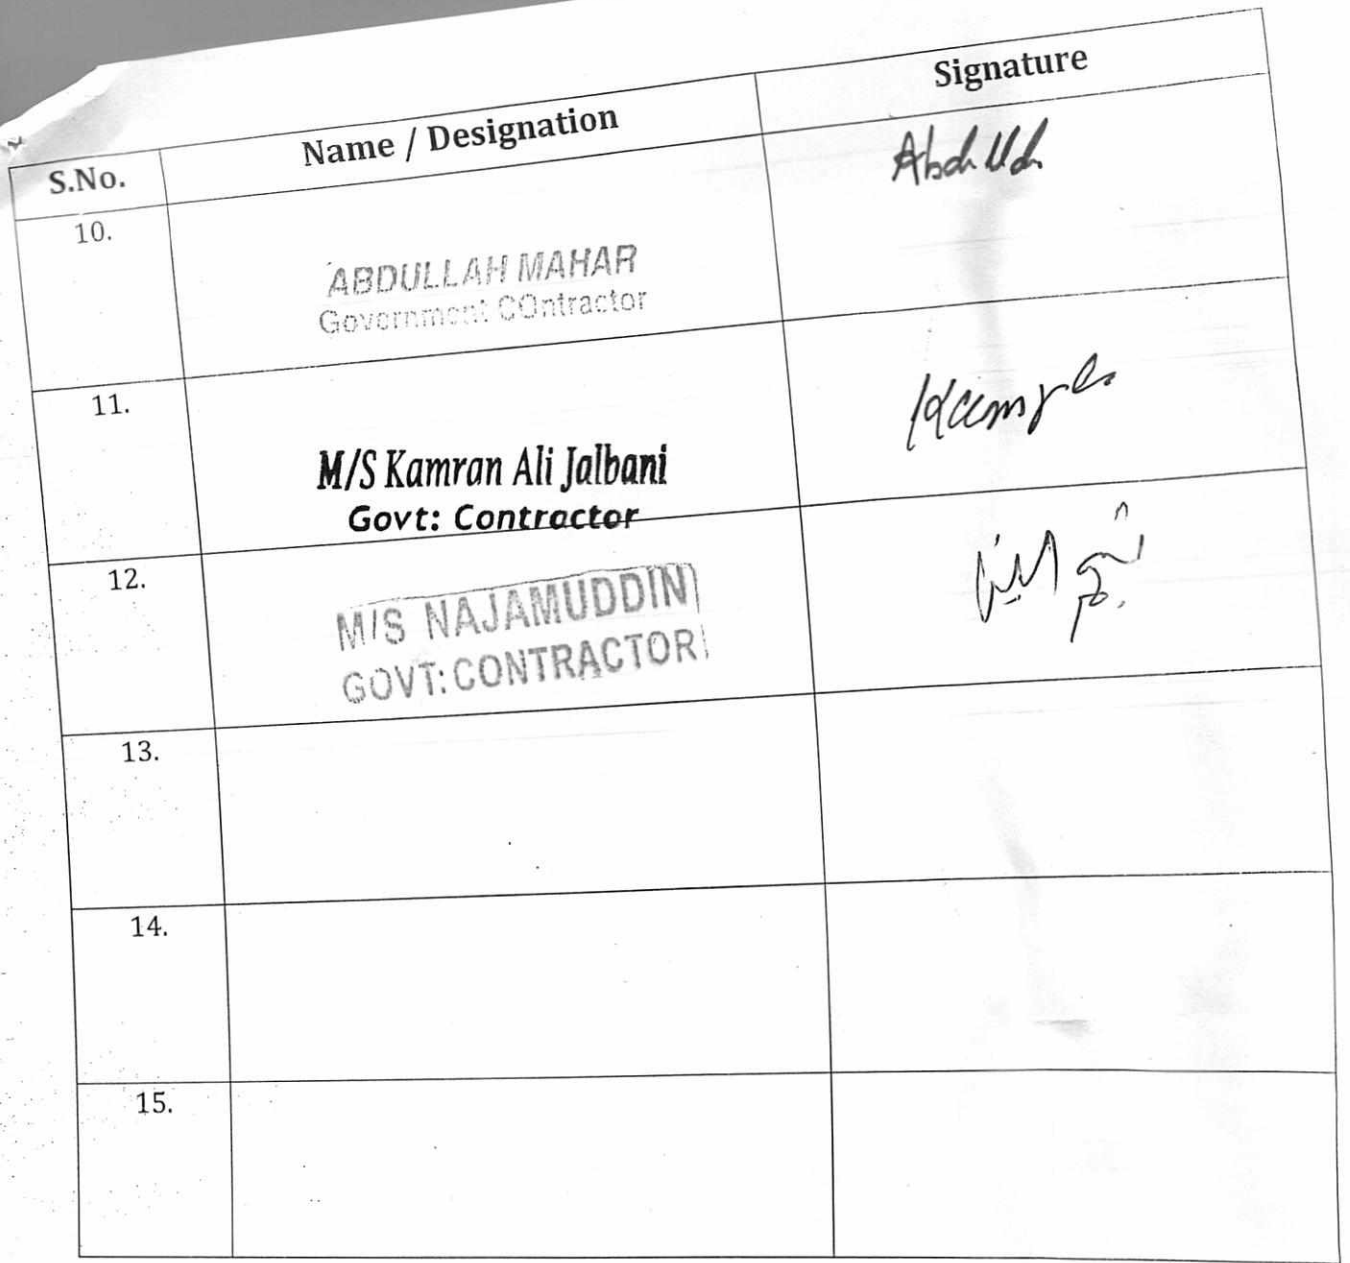 S.No. Name / Designation Signature
10. Abdullah
ABDULLAH MAHAR
Government COntractor
11. Kamran
M/S Kamran Ali Jalbani
Govt: Contractor
12. نجم الدین
M/S NAJAMUDDIN
GOVT: CONTRACTOR
13.
14.
15.